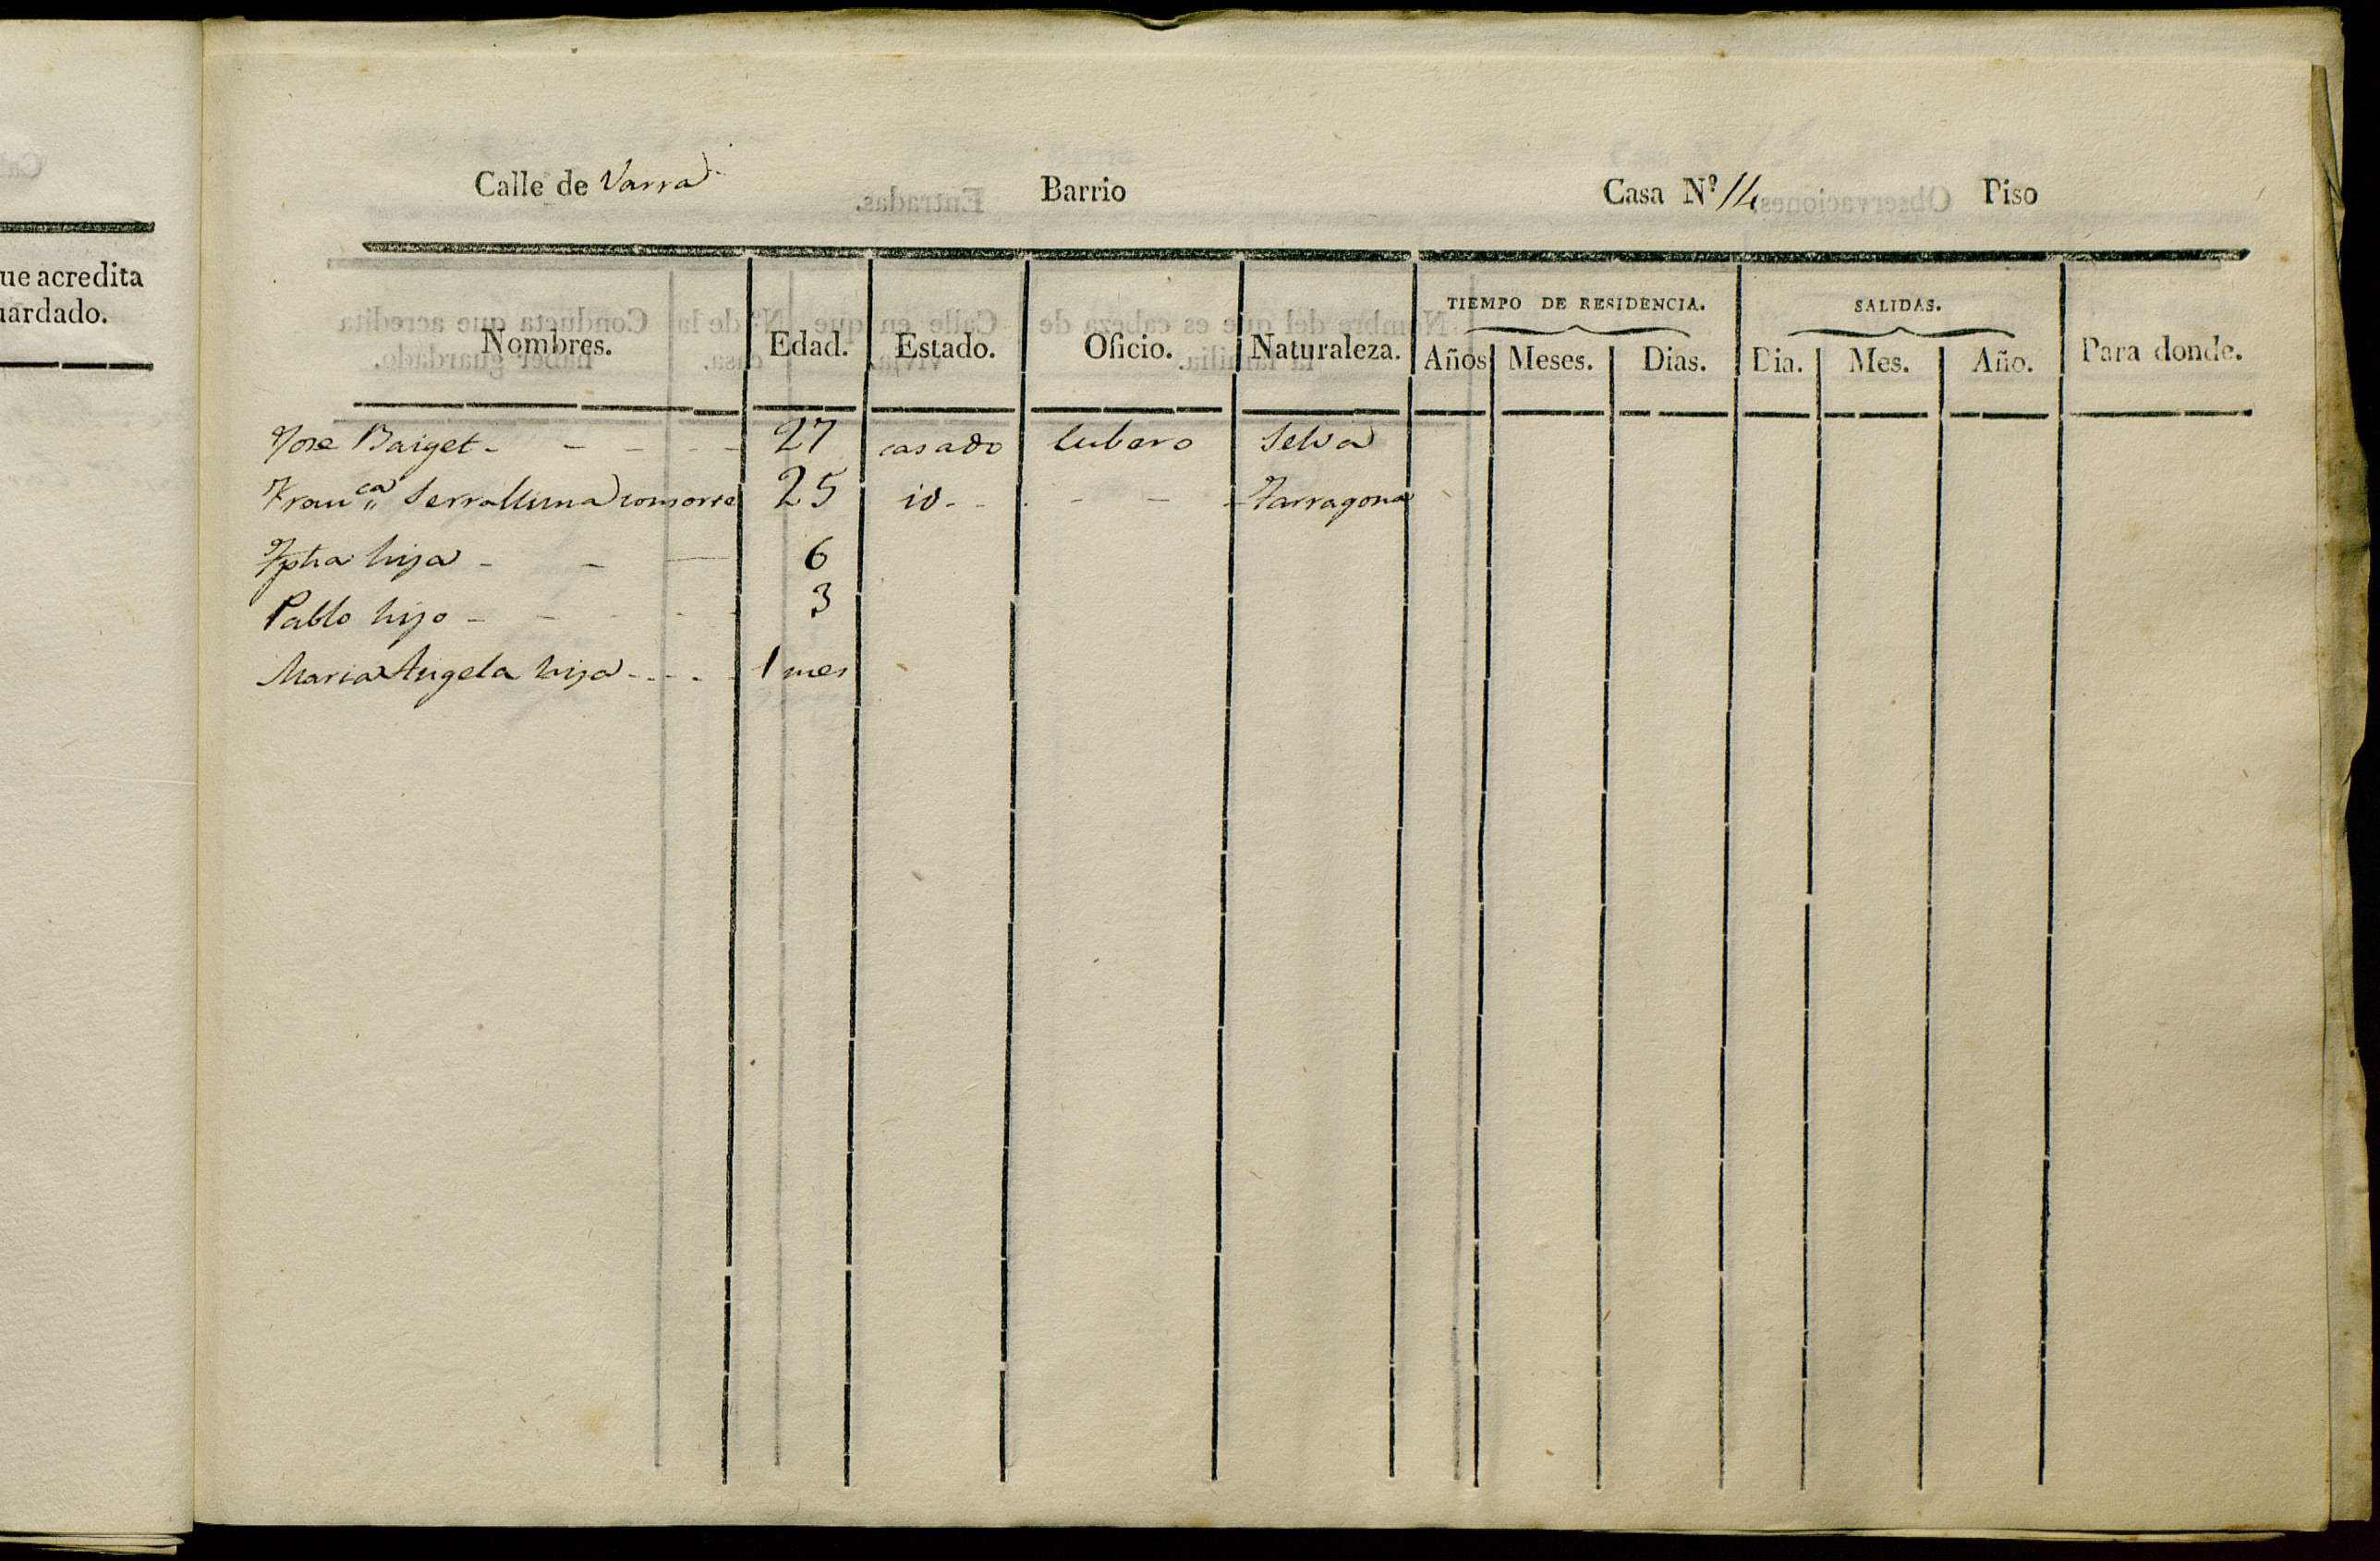 ue acredita
uardado.
Calle de Varra Barrio Casa Nº 14 Piso
TIEMPO DE RESIDENCIA. SALIDAS.
Nombres. Edad. Estado. Oficio. Naturaleza. Años Meses. Dias. Dia. Mes. Año. Para donde.
Jose Baiget - - - - - 27 casado Cubero Selva
Fran.ca Serralluna consorte 25 id. - - - Tarragona
hija - - - 6
Pablo hijo - - - - 3
Maria Angela hija - - - - 1 mes